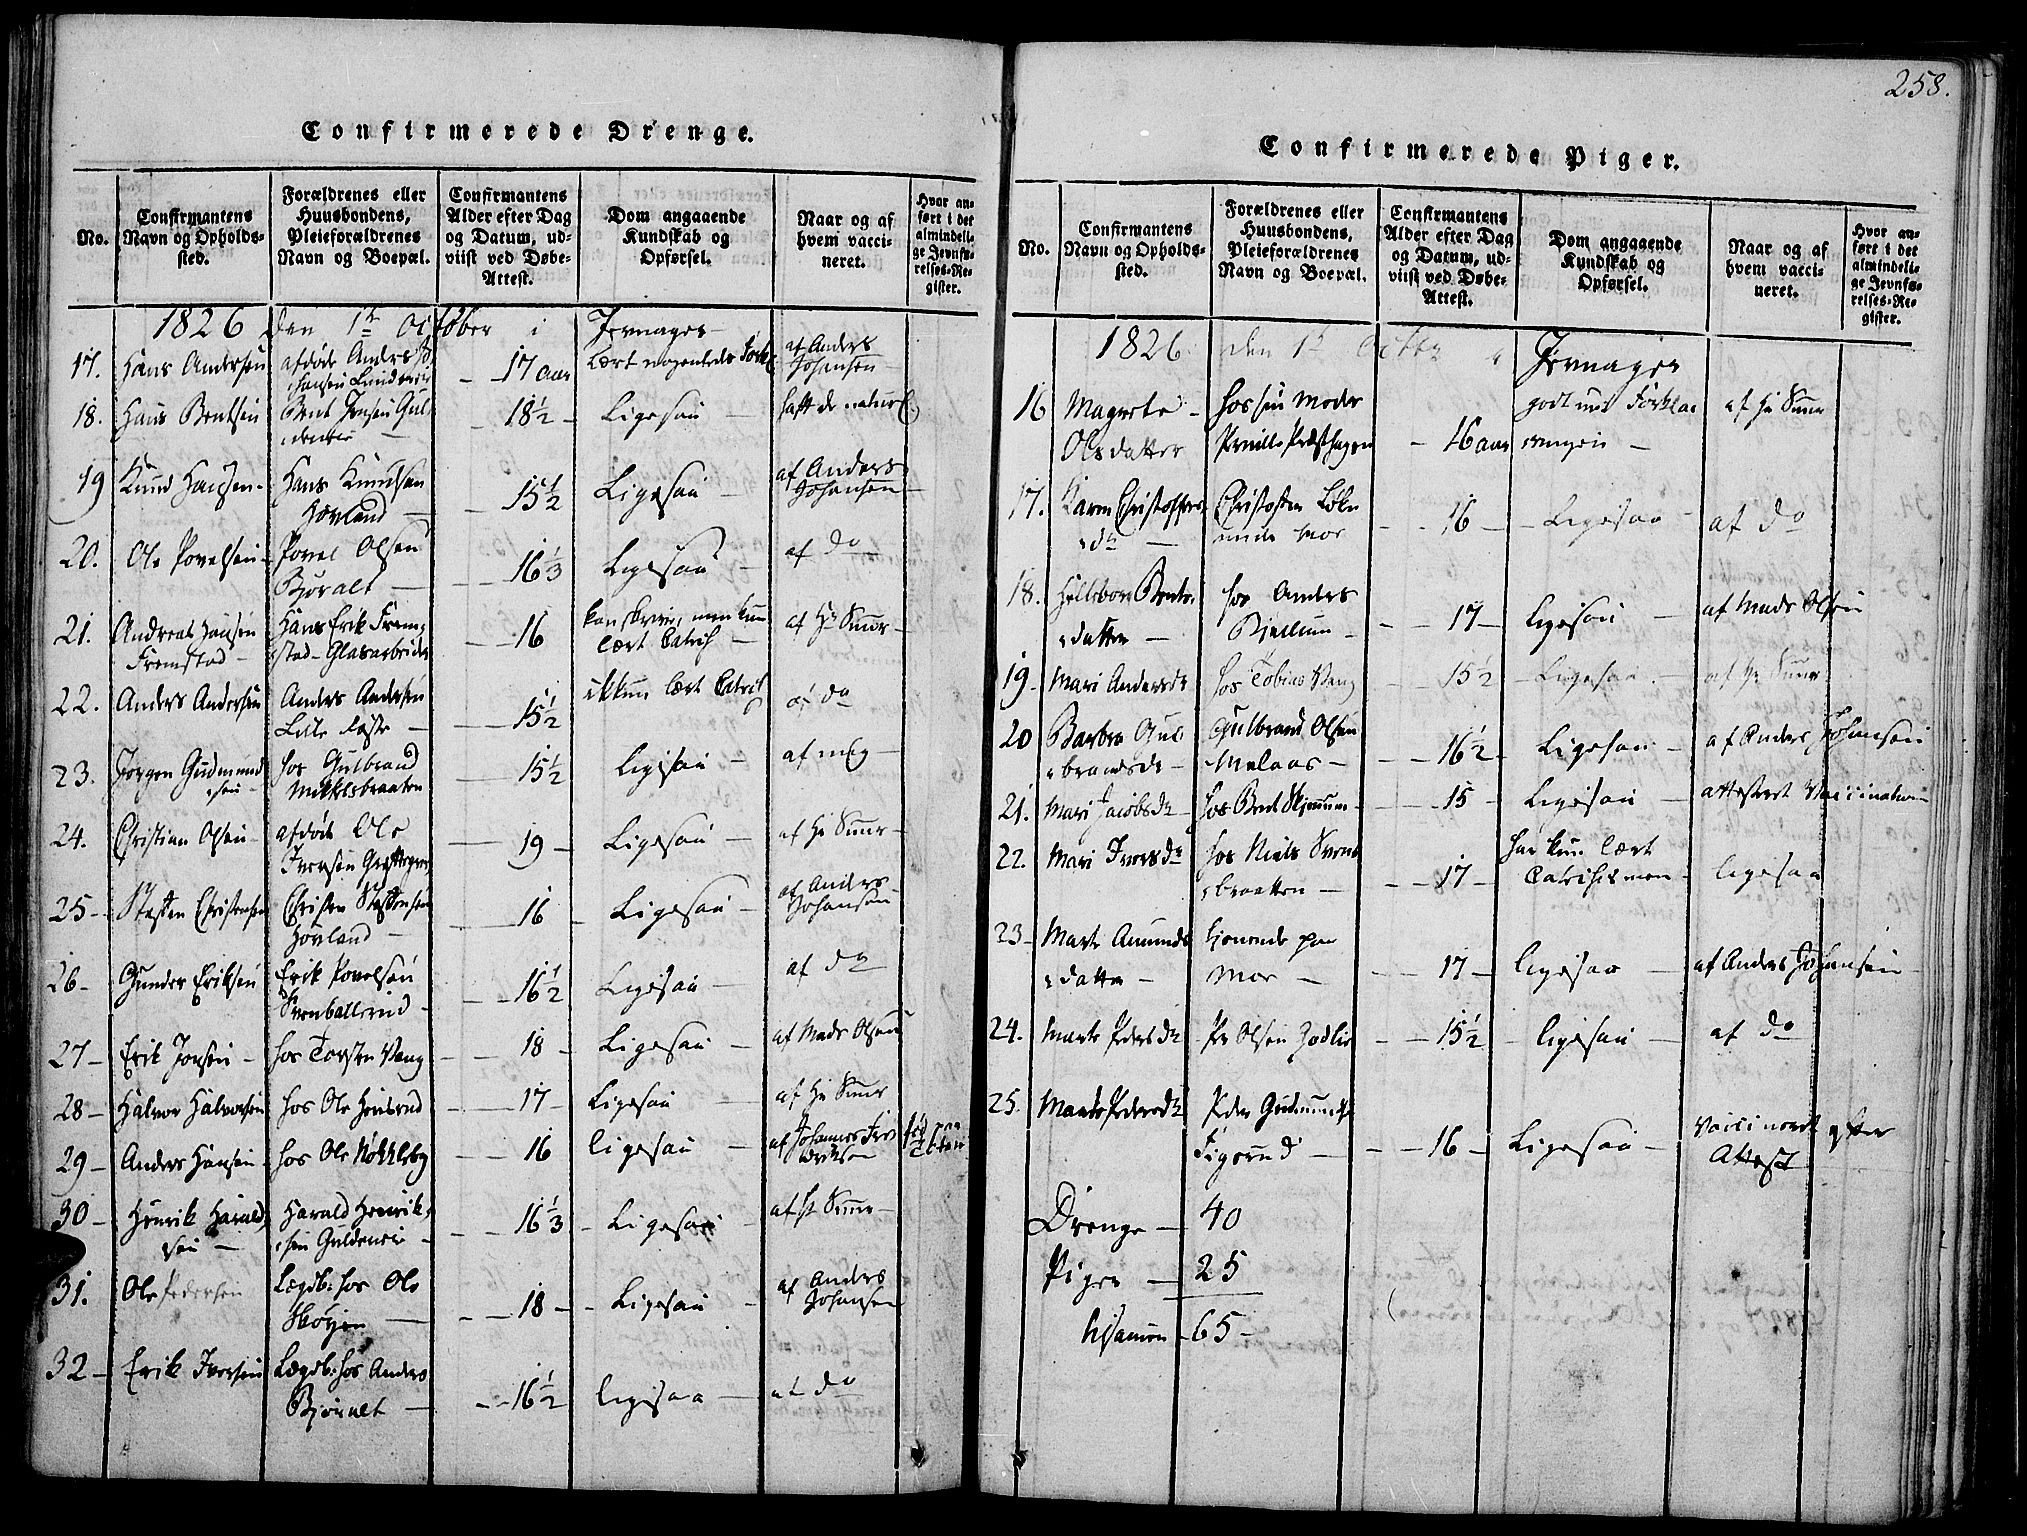 258.
Confirmerede Drenge.
No.
Confirmantens Navn og Opholds-sted.
Forældrenes eller Huusbondens, Pleieforældrenes Navn og Boepæl.
Confirmantens Alder efter Dag og Datum, ud-viist ved Døbe-Attest.
Dom angaaende Kundskab og Opførsel.
Naar og af hvem vacci-neret.
Hvor an-ført i det almindeli-ge Jevnfø-relses-Re-gister.
1826 den 1te October i Jevnager
17. Hans Andersen afdøde Anders Jo
hansen - 17 aar af Anders Johansen
18. Hans Bentsen Bent Jonsen Gul
- 18½ - Ligesaa -
19 Knud Hansen - Hans Knudsen
Hovland - 15½ Ligesaa - af Anders Johansen
20. Ole Povelsen Povel Olsen
Bjøralt - 16⅓ Ligesaa af do
21. Andreas Hansen Hans Erik Frem
Fremstad - stad - Glasarbeider - 16 kan skrive, men kun
lært Catech - af Hr
22. Anders Andersen Anders Andersen
Lille - 15½ ikkun lært Catech af do
23. Jørgen Gudmund
sen - hos Gulbrand
Mikkelsbraaten - 15½ ligesaa - af mig -
24. Christian Olsen - afdøde Ole
Iversen - 19 - Ligesaa - af Hr
25 - Steffen Christensen Christen Steffensen
Hovland - 16 - Ligesaa - af Anders Johansen
26 - Gunder Eriksen Erik Povelsen
- 16½ Ligesaa - af do
27 - Erik Jonsen - hos Torsten Vang - 18 - Ligesaa - af Mads Olsen
28 - Halvor Halvorsen hos Ole - 17 - Ligesaa - af Hr
29 - Anders Hansen - hos Ole Nøkkleby - 16 ligesaa - af Johannes
30 - Henrik Harald
sen - Harald Henrik
sen Guldeneie - 16⅓ - Ligesaa - af Hr
31. Ole Pedersen Lægdb: hos Ole
Skøyen - 18 - Ligesaa - af Anders Johansen
32 - Erik Iversen Lægdb: hos Anders
Bjøralt - 16½ ligesaa - af do
Confirmerede Piger.
No.
Confirmantens Navn og Opholds-sted.
Forældrenes eller Huusbondens, Pleieforældrenes Navn og Boepæl.
Confirmantens Alder efter Dag og Datum, ud-viist ved Døbe-Attest.
Dom angaaende Kundskab og Opførsel.
Naar og af hvem vacci-neret.
Hvor an-ført i det almindeli-ge Jevnfø-relses-Re-gister.
1826 den 1te i Jevnager
16 Magrete
Olsdatter hos sin Moder
Pernille - 16 aar godt med Forklar
ringen - af Hr
17. Karen Christoffers
dr - Christoffer
- 16 - - Ligesaa - af do
18. Bents
datter - hos Anders
Bjellum - - 17 - Ligesaa - af Mads Olsen
19. Mari Andersdr hos Tobias Vang - 15½ - Ligesaa - af Hr
20 Barbro Gul
brandsdr - Gulbrand Olsen
Melaas - - 16½ - Ligesaa - af Anders Johansen
21. Mari Jacobsdr - hos Bent - 15 - Ligesaa - attesteret Vaccination
22. Mari Iversdr hos Niels
braatten - - 17 - har kun lært
Catechismen - ligesaa
23 - Marte Amunds
datter - tjenende paa
Moe - - 17 - ligesaa - af Anders Johansen
24. Marte Pedersdr Per Olsen - 15½ - ligesaa - af do
25. Marte Pedersdr Peder Gudmunds
- 16 - Ligesaa - Vaccineret efter
Attest
Drenge - 40
Piger - 25
tilsamen - 65 -